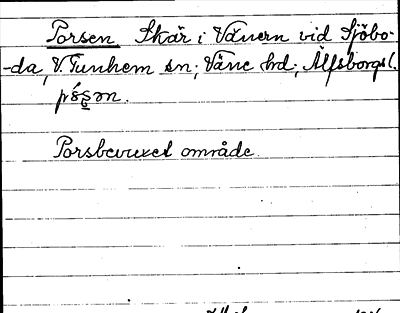 Porsen Skär i Vänern vid Sjöbo-
-da, V. Tunhem sn; Väne hd; Älfsborgs l.
Porsbevuxet område.